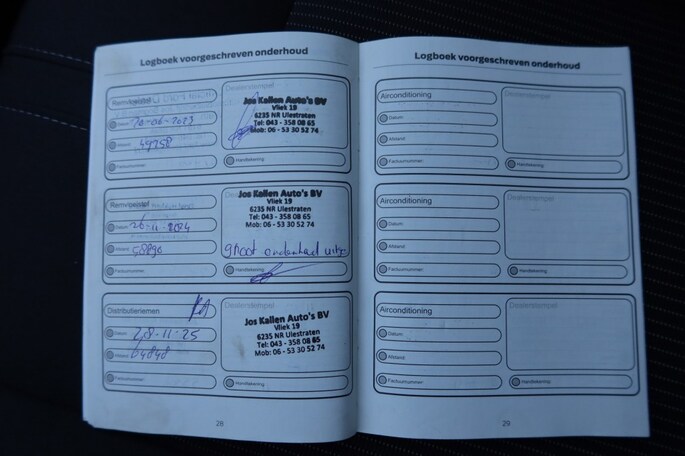 Logboek voorgeschreven onderhoud
Remvloeistof
Dealerstempel
Jos Kallen Auto's BV
Vliek 19
6235 NR Ulestraten
Tel: 043 - 358 08 65
Mob: 06 - 53 30 52 74
Datum 10-06-2023
Afstand 49258
Factuurnummer
Handtekening
Remvloeistof
Jos Kallen Auto's BV
Vliek 19
6235 NR Ulestraten
Tel: 043 - 358 08 65
Mob: 06 - 53 30 52 74
Datum 26-11-2024
Afstand 58890
groot onderhoud
Factuurnummer
Handtekening
Distributieriemen
Dealerstempel
Jos Kallen Auto's BV
Vliek 19
6235 NR Ulestraten
Tel: 043 - 358 08 65
Mob: 06 - 53 30 52 74
Datum 28-11-25
Afstand 64848
Factuurnummer
Handtekening
28
Logboek voorgeschreven onderhoud
Airconditioning
Dealerstempel
Datum
Afstand
Factuurnummer
Handtekening
Airconditioning
Dealerstempel
Datum
Afstand
Factuurnummer
Handtekening
Airconditioning
Dealerstempel
Datum
Afstand
Factuurnummer
Handtekening
29